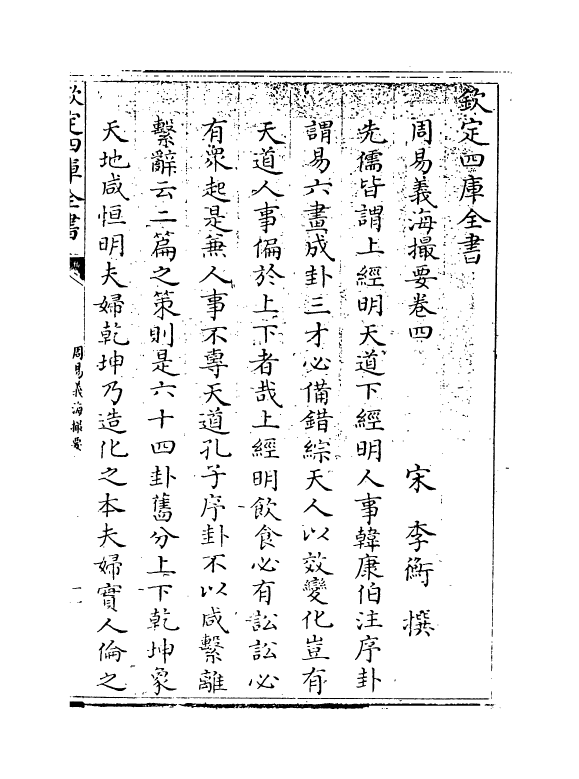 欽定四庫全書
周易義海撮要卷四
宋 李衡 撰
先儒皆謂上經明天道下經明人事韓康伯注序卦
謂易六畫成卦三才必備錯綜天人以效變化豈有
天道人事偏於上下者哉上經明飲食必有訟訟必
有衆起是兼人事不專天道孔子序卦不以咸繫離
繫辭云二篇之策則是六十四卦舊分上下乾坤象
天地咸恒明夫婦乾坤乃造化之本夫婦實人倫之
欽定四庫全書
周易義海撮要
一